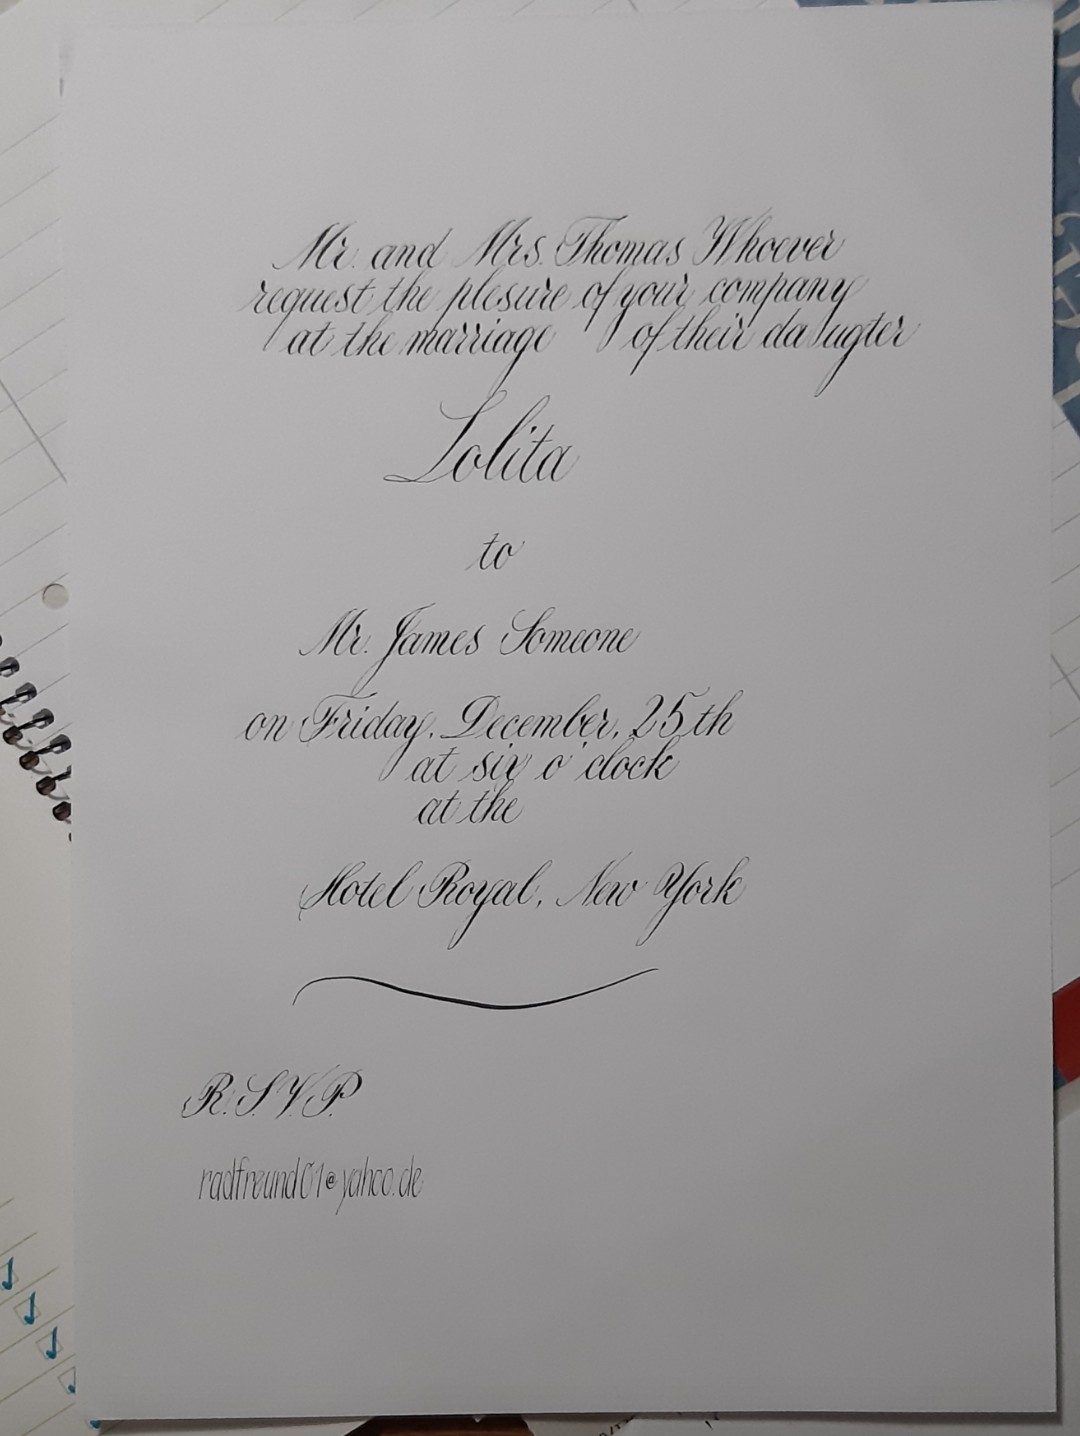 Mr. and Mrs. Thomas Whoever
request the plesure of your company
at the marriage of their daugter
Lolita
to
Mr. James Someone
on Friday, December, 25th
at six o'clock
at the
Hotel Royal, New York
R.S.V.P.
radfreund01@yahoo.de